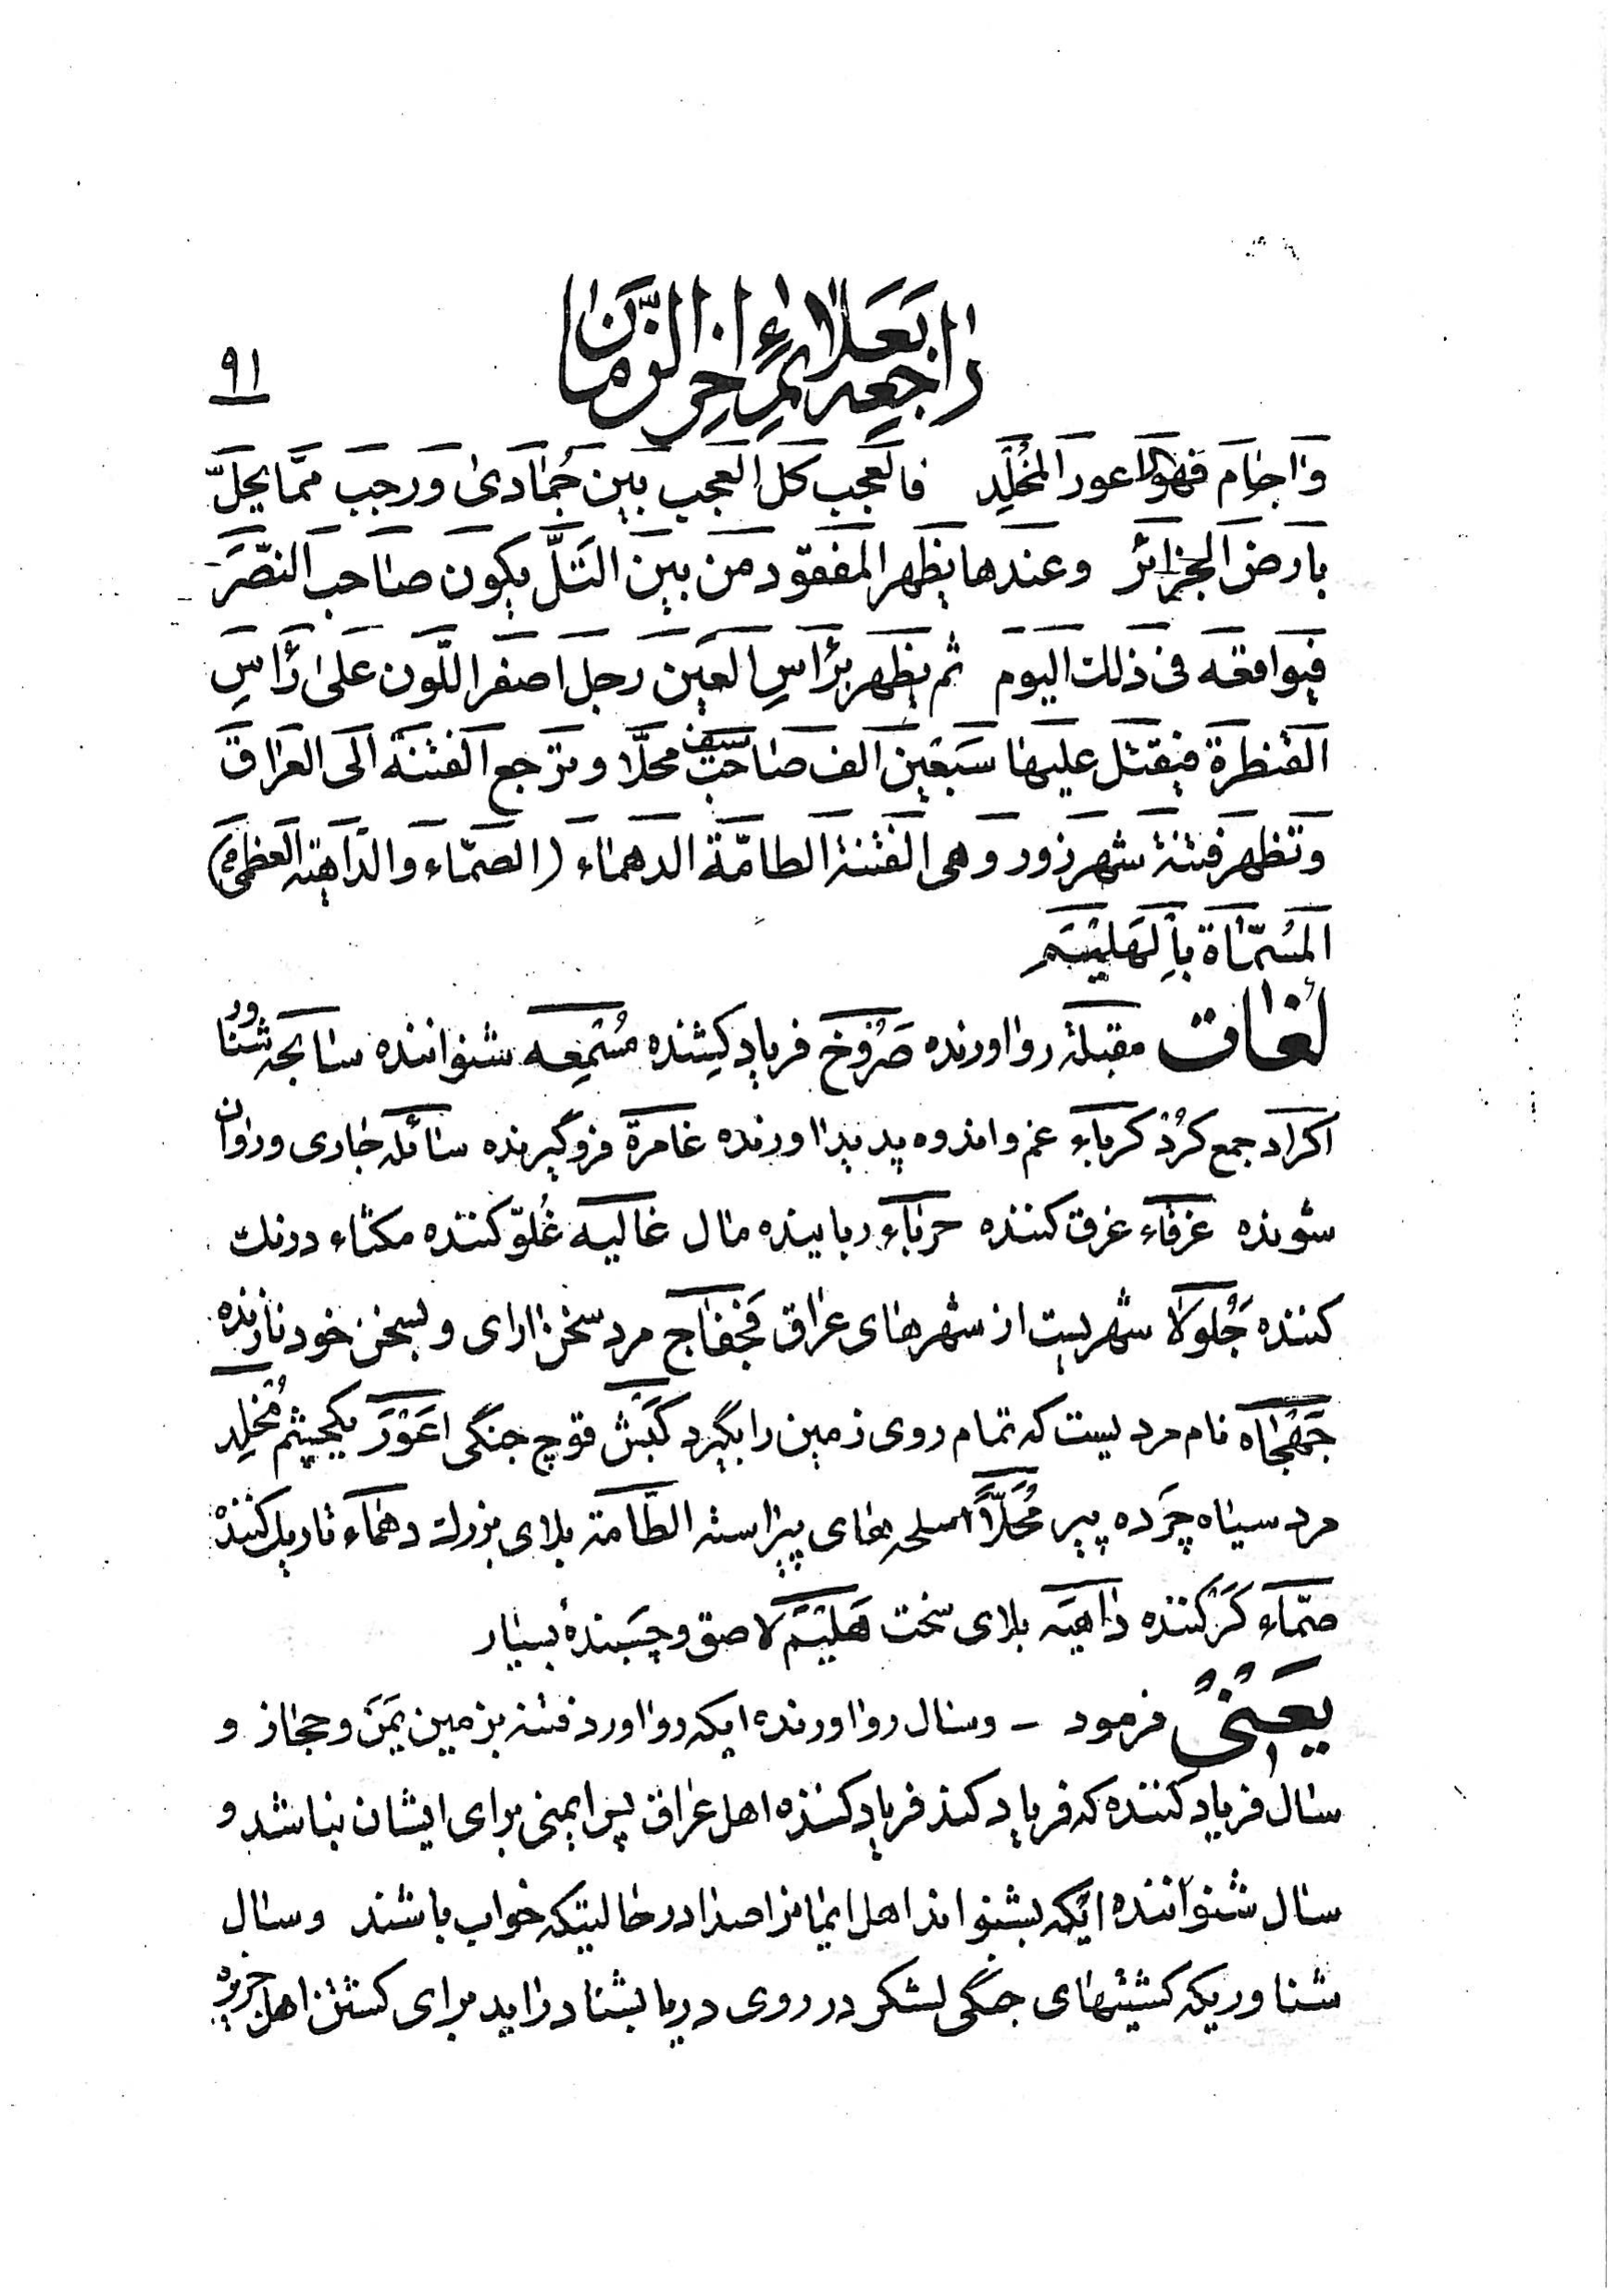 راجعه بعلائم آخر الزمان
۹۱
واجام فهو الاعور المخلد فالعجب كل العجب بين جمادى ورجب مما يحل
بارض الجزائر وعندها يظهر المفقود من بين التل يكون صاحب النصر
فيوافقه فى ذلك اليوم ثم يظهر براس العين رجل اصفر اللون على راس
القنطرة فيقتل عليها سبعين الف صاحب سيف محلا وترجع الفتنة الى العراق
وتظهر فتنة شهرزور وهى الفتنة الطامّة الدهماء (الصمّاء والداهية العظمى)
المسمّاة بالهليم
لغات مقبله رواورنده صروخ فرياد كشنده مسمعه شنواننده سابحه شناور
اكراد جمع كرد كرباء غم واندوه پديد اورنده غامرة فروگيرنده سائله جارى وروان
شونده غرقاء غرق كننده حرباء رباينده مال غاليه غلوّ كننده مكثاء درنك
كننده جلولا شهريست از شهرهاى عراق فجفاج مرد سخن اراى وبسخن خود نازنده
جهجاه نام مرديست كه تمام روى زمين را بگيرد كبش قوچ جنگى اعور يكچشم مخلد
مرد سياه چرده پير محلّا اسلحه هاى پيراسته الطّامة بلاى بزرك دهماء تاريك كننده
صمّاء كر كننده داهيه بلاى سخت هليم لاصق وچسبندهٔ بسيار
يعنى فرمود - وسال رواورنده ايكه رواورد فتنه بزمين يمن وحجاز و
سال فرياد كننده كه فرياد كند فرياد كننده اهل عراق پس ايمنى براى ايشان نباشد و
سال شنواننده ايكه بشنواند اهل ايمانرا صدا در حاليتكه خواب باشند وسال
شناوريكه كشتيهاى جنگى لشكر در روى دريا بشنا درايد براى كشتن اهل جزيره